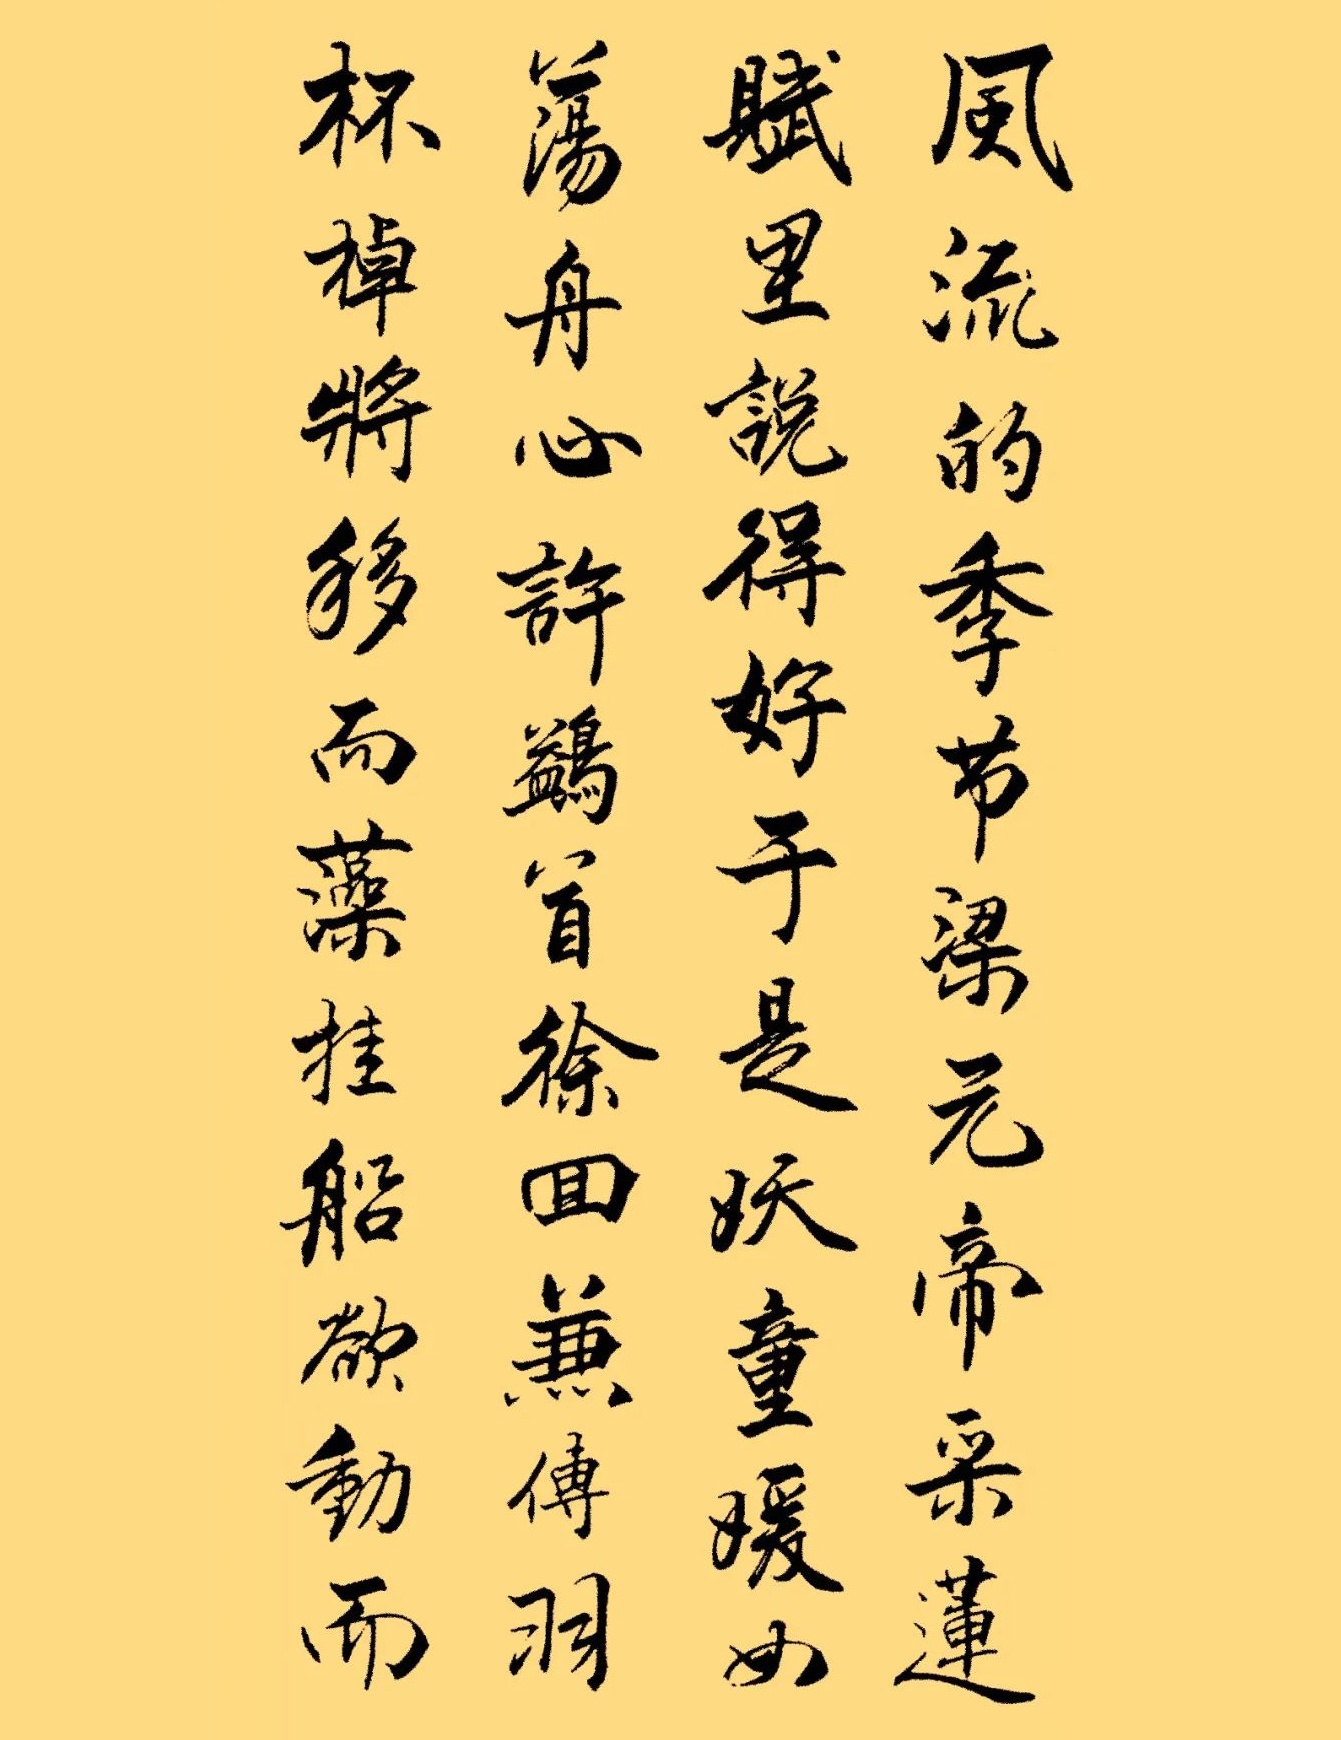 風流的季节梁元帝采蓮
賦里說得好于是妖童媛女
蕩舟心許鷁首徐回兼傳羽
杯棹將移而藻挂船欲動而